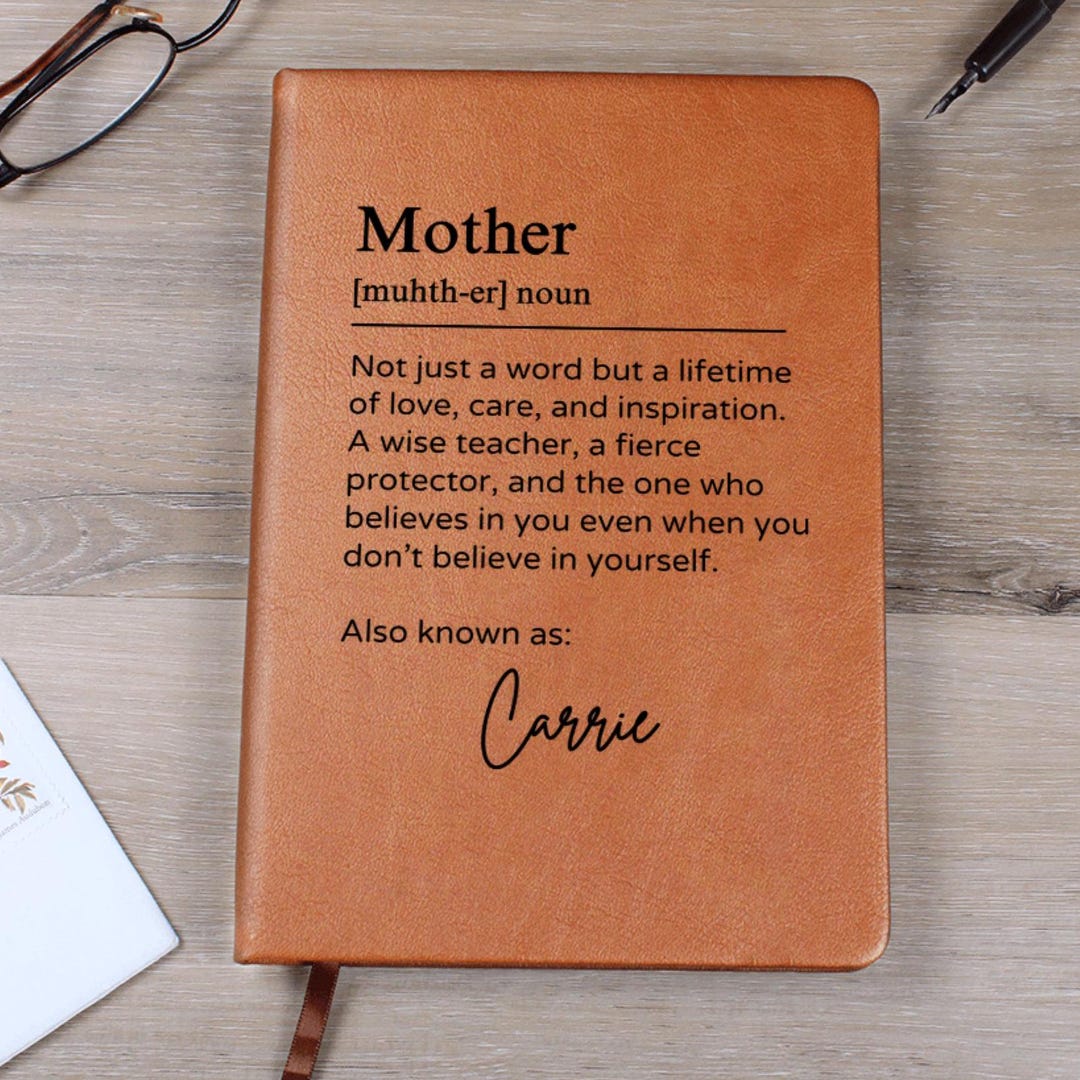 Mother
[muhth-er] noun
Not just a word but a lifetime
of love, care, and inspiration.
A wise teacher, a fierce
protector, and the one who
believes in you even when you
don’t believe in yourself.
Also known as:
Carrie
James Audubon